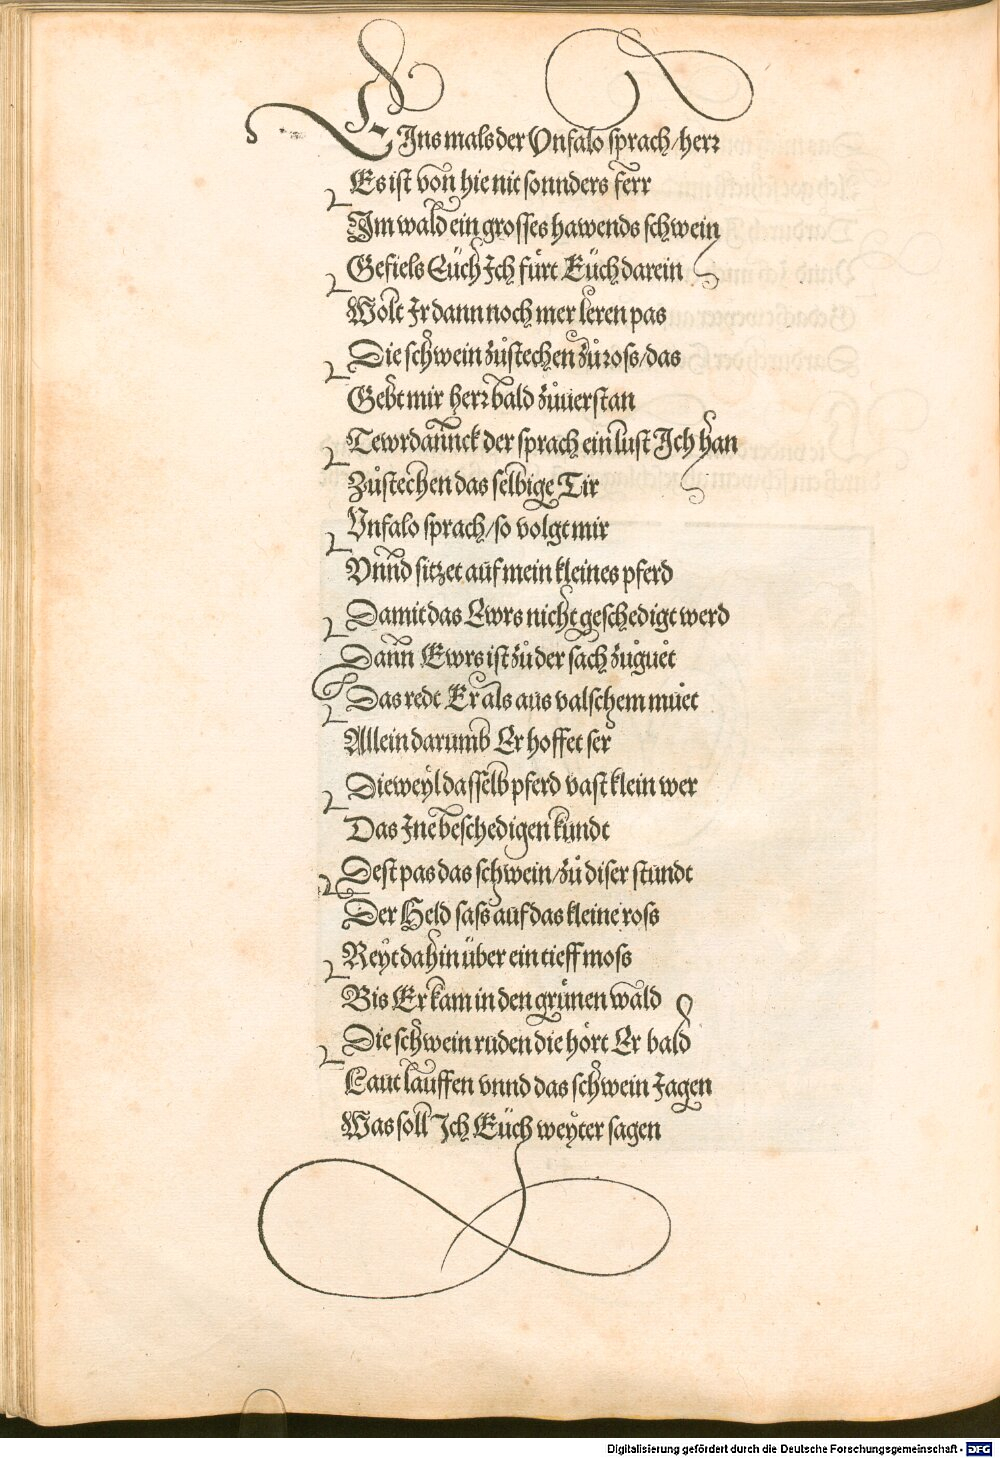 EIns mals der Vnfalo sprach/herr
Es ist von hie nit sonnders ferr
Im wald ein grosses hawends schwein
Gefiels Eüch Ich fürt Eüch darein
Wolt Ir dann noch mer leren pas
Die schwein zůstechen zů ross/das
Gebt mir herr bald zůuerstan
Tewrdannck der sprach ein lust Ich han
Zůstechen das selbige Tir
Vnfalo sprach/so volgt mir
Vnnd sitzet auf mein kleines pferd
Damit das Ewrs nicht geschedigt werd
Dann Ewrs ist zů der sach zůgůet
Das redt Er als aus valschem můet
Allein darumb Er hoffet ser
Dieweyl dasselb pferd vast klein wer
Das Jne beschedigen kundt
Dest pas das schwein/zů diser stundt
Der Held sass auf das kleine ross
Reyt dahin über ein tieff moss
Bis Er kam in den grůnen wald
Die schwein ruden die hört Er bald
Laut lauffen vnnd das schwein Jagen
Was soll Ich Eüch weyter sagen
Digitalisierung gefördert durch die Deutsche Forschungsgemeinschaft - DFG